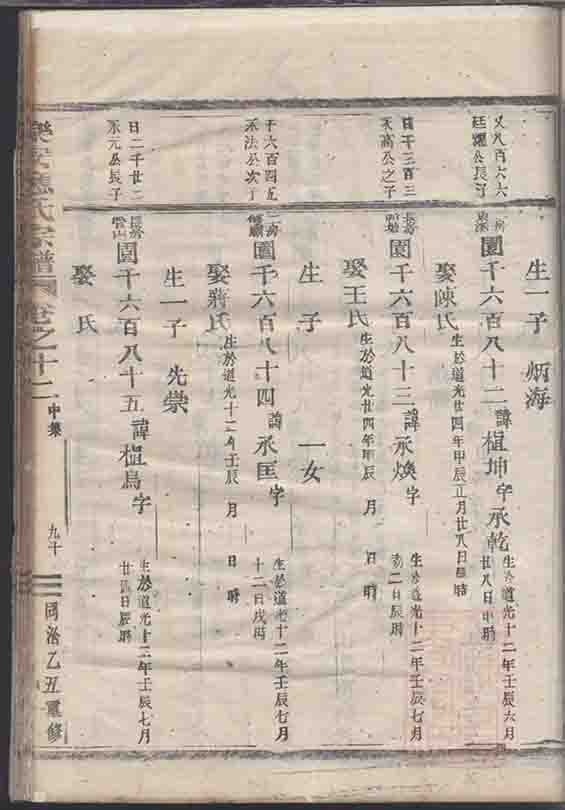 生一子 炳海
廷耀公長子
園千六百八十二 諱植坤 字承乾
生於道光十二年壬辰六月
廿八日申時
娶陳氏 生於道光廿四年甲辰正月廿八日 時
日千三百三
承高公之子
長房
園千六百八十三 諱承煥 字
生於道光十二年壬辰七月
初二日辰時
娶王氏 生於道光廿四年甲辰 月 日 時
生 子 一女
千六百四九
承法公次子
二房
園千六百八十四 諱承匡 字
生於道光十二年壬辰七月
十二日戌時
娶蔣氏 生於道光十二年壬辰 月 日 時
生一子 先崇
日二千廿二
承元公長子
長房
園千六百八十五 諱植鳥 字
生於道光十二年壬辰七月
日辰時
娶 氏
樂安 氏宗譜 卷之十二 中集 九十 同治乙丑重修